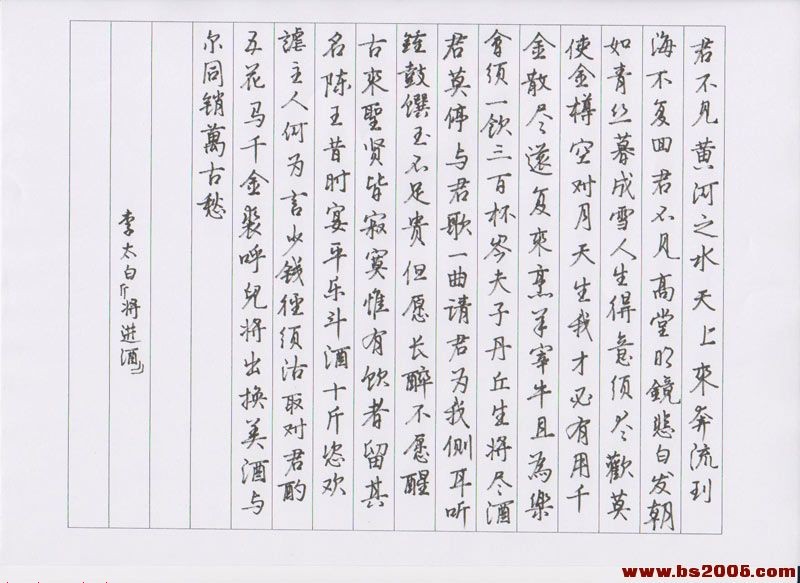 君不见黄河之水天上來奔流到
海不复回君不见高堂明鏡悲白发朝
如青丝暮成雪人生得意须尽歡莫
使金樽空对月天生我才必有用千
金散尽還复來烹羊宰牛且為樂
會须一飲三百杯岑夫子丹丘生将尽酒
君莫停与君歌一曲请君为我侧耳听
鍾鼓馔玉不足贵但愿长醉不愿醒
古來聖贤皆寂寞惟有饮者留其
名陈王昔时宴平乐斗酒十斤恣欢
謔主人何为言少钱径须沽取对君酌
五花马千金裘呼兒将出换美酒与
尔同销萬古愁
李太白「将进酒」
www.bs2005.com